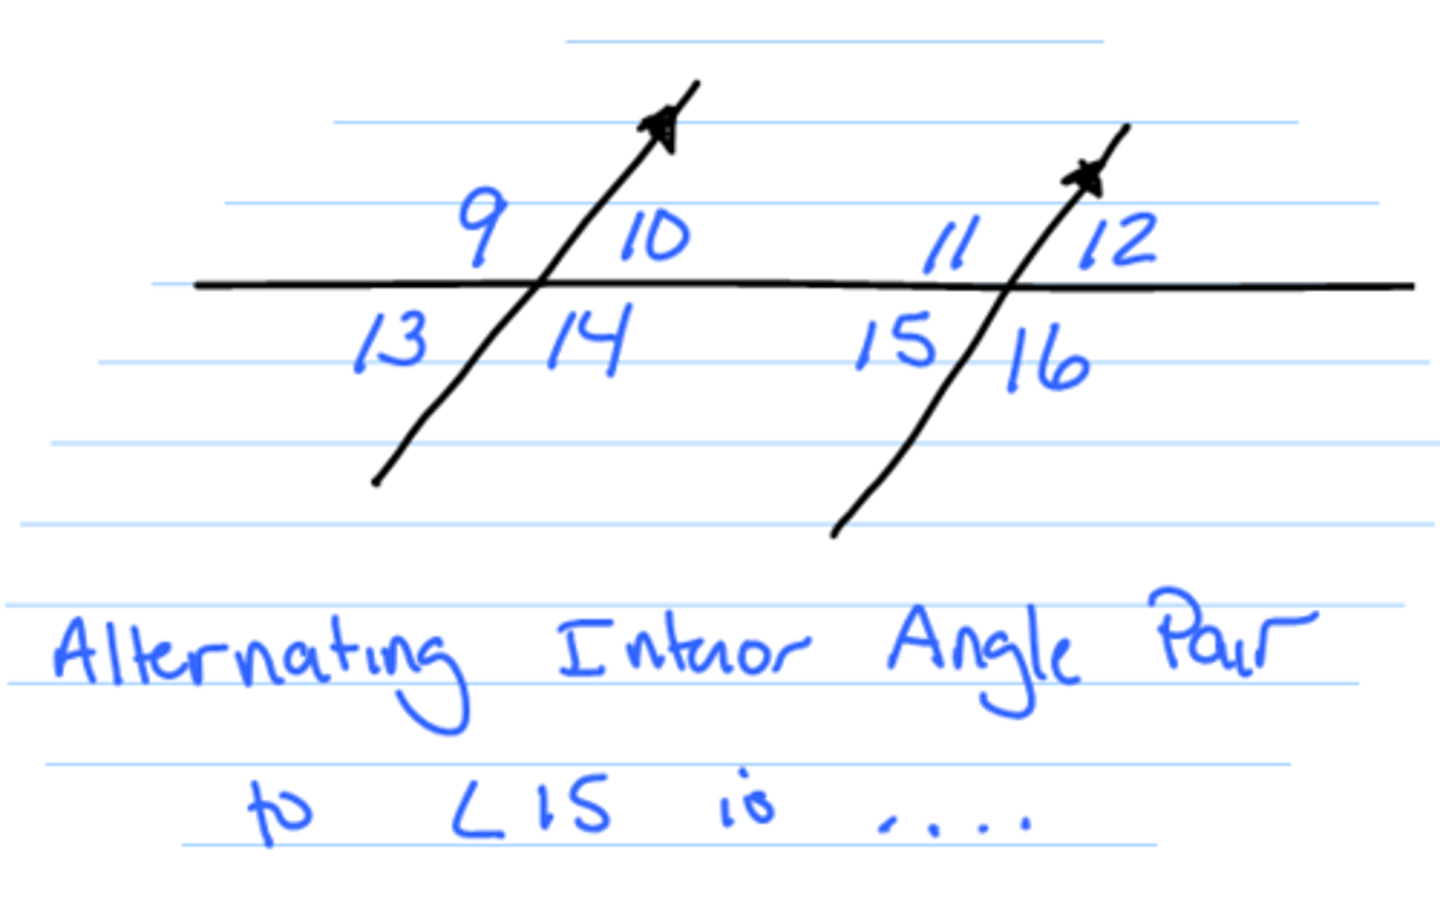 9 10 11 12
13 14 15 16
Alternating Interior Angle Pair
to ∠15 is ....